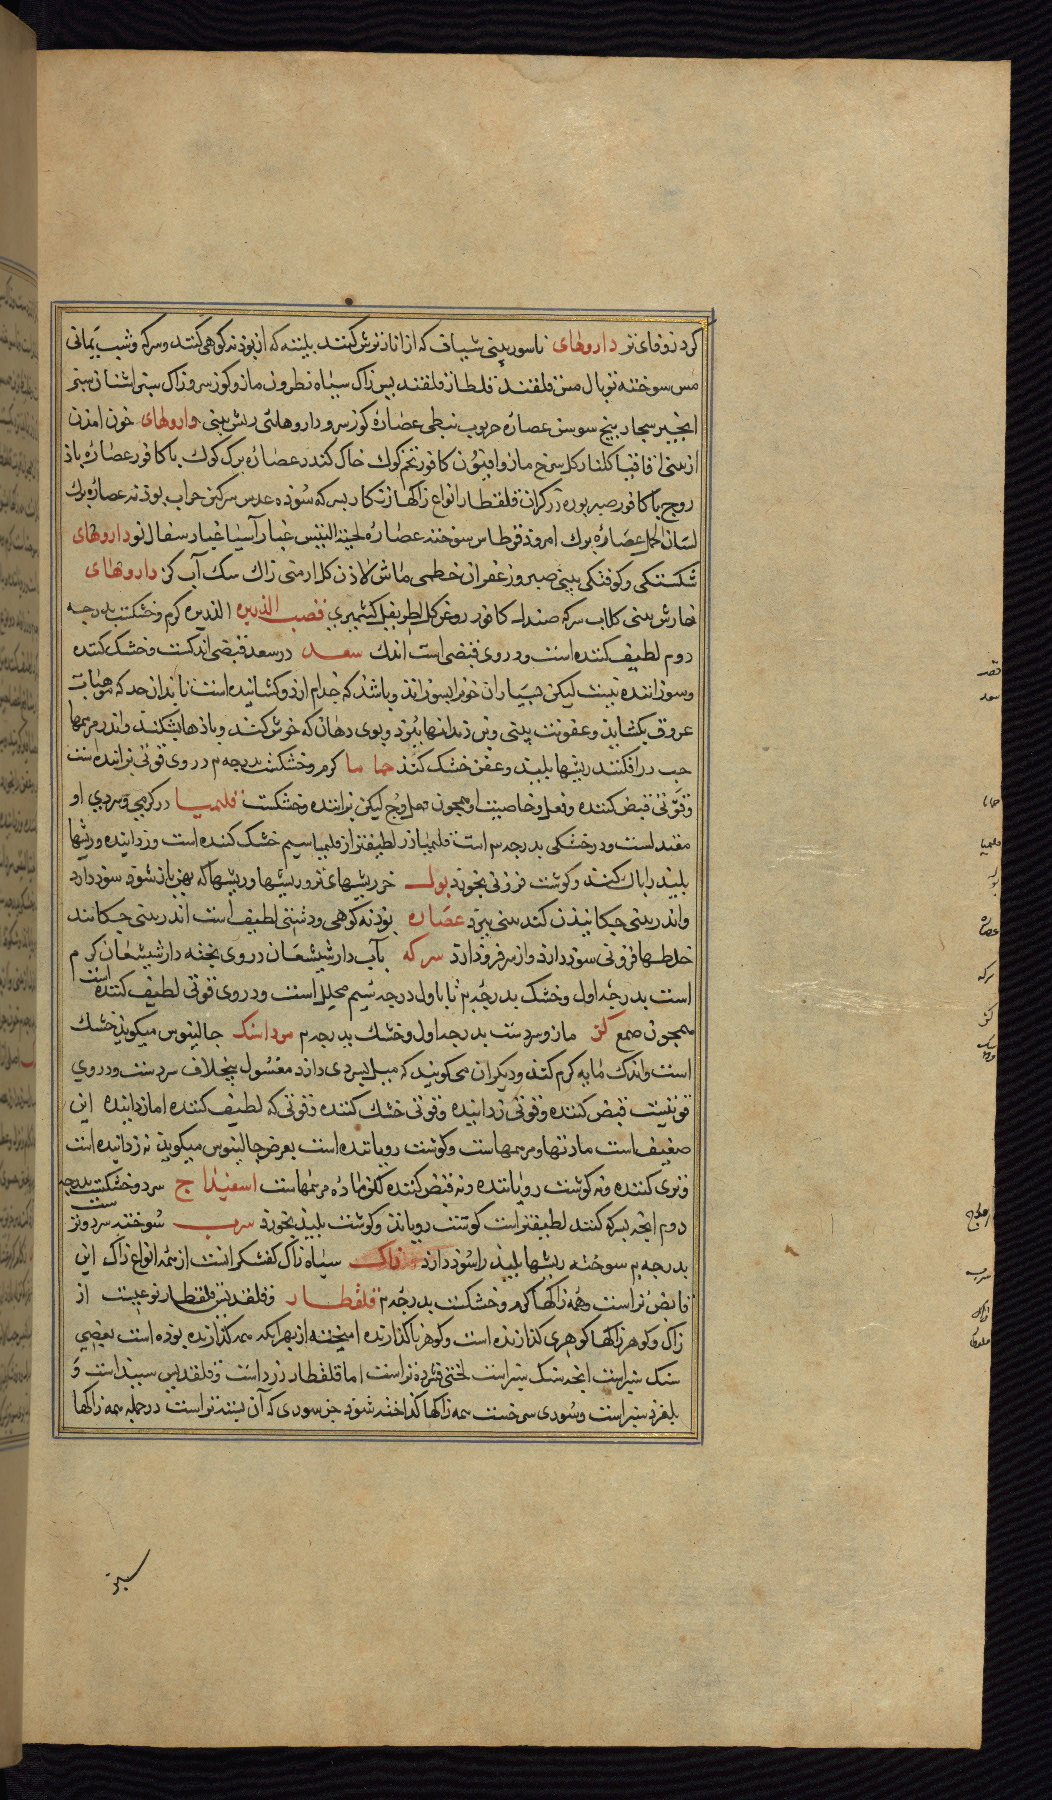 کرد زوفای تر داروهای ناسور بینی شیاف که از انار ترش کنند بلیته که از پوذنه کوهی کنند و سرکه و شب یمانی
مس سوخته توبال مس قلقند قلطار قلقندیس زاک سیاه نطرون مازو کوز سرو زاک سبز اشنان سبز
انجیر بیخ سوسن عصاره خربوب نبطی عصاره کوز سرو داروهای ریش بینی داروهای خون امدن
از بینی اقاقیا کلنار کل سرخ مازو افیون کافور تخم کوک خاک کندر عصاره برک کوک با کافور عصاره باذ
روج با کافور صبر بوره زرکران قلقطار انواع زاکها زنکار بسرکه سوذه عدس سرکین خر آب پوذنه عصاره برک
لسان الحمل عصاره برک امروذ قرطاس سوخته عصاره لحیة التیس غبار آسیا غبار سفال نو داروهای
شکستکی و کوفتکی بینی صبر و زعفران خطمی ماش لاذن کل ارمنی زاک سک آب کز داروهای
خارش بینی کلاب سرکه صندل کافور روغن کل اطریفل کشمیری قصب الذریره الذریره کرم و خشکست بدرجه
دوم لطیف کننده است و در وی قبضی است اندک سعد در سعد قبضی اندکست و خشک کننده
و سوزاننده نیست لیکن بسیار ان خون را بسوزاند و باشذ که جذام ارد و کشاینده است تا بدان حد که دهانهای
عروق بکشاید و عفونت بینی و بن دندانها ببرد و بوی دهان که خوش کند و باذها بشکند و اندر مرهمها
جب در افکنند ریشها بلید و عفن خشک کند حماما کرم و خشکست بدرجه م در وی قوتی پزاننده است
و قوتی قبض کننده و فعل و خاصیت او همچون فعل وج لیکن پزاننده و خشکست قلیمیا در کرمی و سردی او
معتدلست و در خشکی بدرجه سه است قلیمیا زر لطیفتر از قلیمیا سیم خشک کننده است و زداینده و ریشها
بلید را پاک کند و کوشت فزونی بخورد بول خر ریشهای تر و ریشها و ریشها که بهن باز شود سوذ دارد
و اندر بینی چکانیذن کند بینی ببرد عصاره پوذنه کوهی و دشتی لطیف است اندر بینی چکانند
خلطها فزونی سوذ دارد و از سر فروذ ارد سرکه بآب دارشیشعان در وی پخته دارشیشعان کرم
است بدرجه اول و خشک بدرجه م تا باول درجه سیم محلل است و در وی قوتی لطیف کننده است
همچون صمغ کز مازو سردست بدرجه اول و خشک بدرجه م مرداسنک جالینوس میکوید خشک
است و اندک مایه کرم کند و دیکران می کویند که میل بسردی دارد مغسول بیخلاف سردست و در وی
قوتیست قبض کننده و قوتی زداینده و قوتی خشک کننده و قوتی که لطیف کننده اما زداینده این
ضعیف است مادتها و مرهمهاست و کوشت رویاننده است بعرض جالینوس میکوید نه زداینده است
و نری کننده و نه کوشت رویاننده و نه قبض کننده لکن ماده مرهمهاست اسفیداج سرد و خشکست بدرجه
دوم انچه بسرکه کنند لطیفتر است کوشت رویاند و کوشت بلید بخورد سرب سوخته سرد و تر است
بدرجه م سوخته ریشها بلید را سوذ دارد زاک سیاه زاک کفشکرانست از همه انواع زاک این
قابض تر است و همه زاکها کرم و خشکست بدرجه م قلقطار و قلقدیس قلقطار نوعیست از
زاک و کوهر زاکها کوهری کدازنده است و کوهر ناکدازنده امیخته از بهر انکه همه کدازنده بوده است بعضی
سنک شیراست انچه سنک شیراست لختی فشرده تر است اما قلقطار زرد است و قلقدیس سبیذ است و
بلقند سبز است و سوری سرخست همه زاکها کداخته شوذ جز سوری که آن بسته تر است در جمله همه زاکها
سبز
قصب
سعد
حماما
قلیمیا
بول
عصاره
سرکه
کز
سرب
زاک